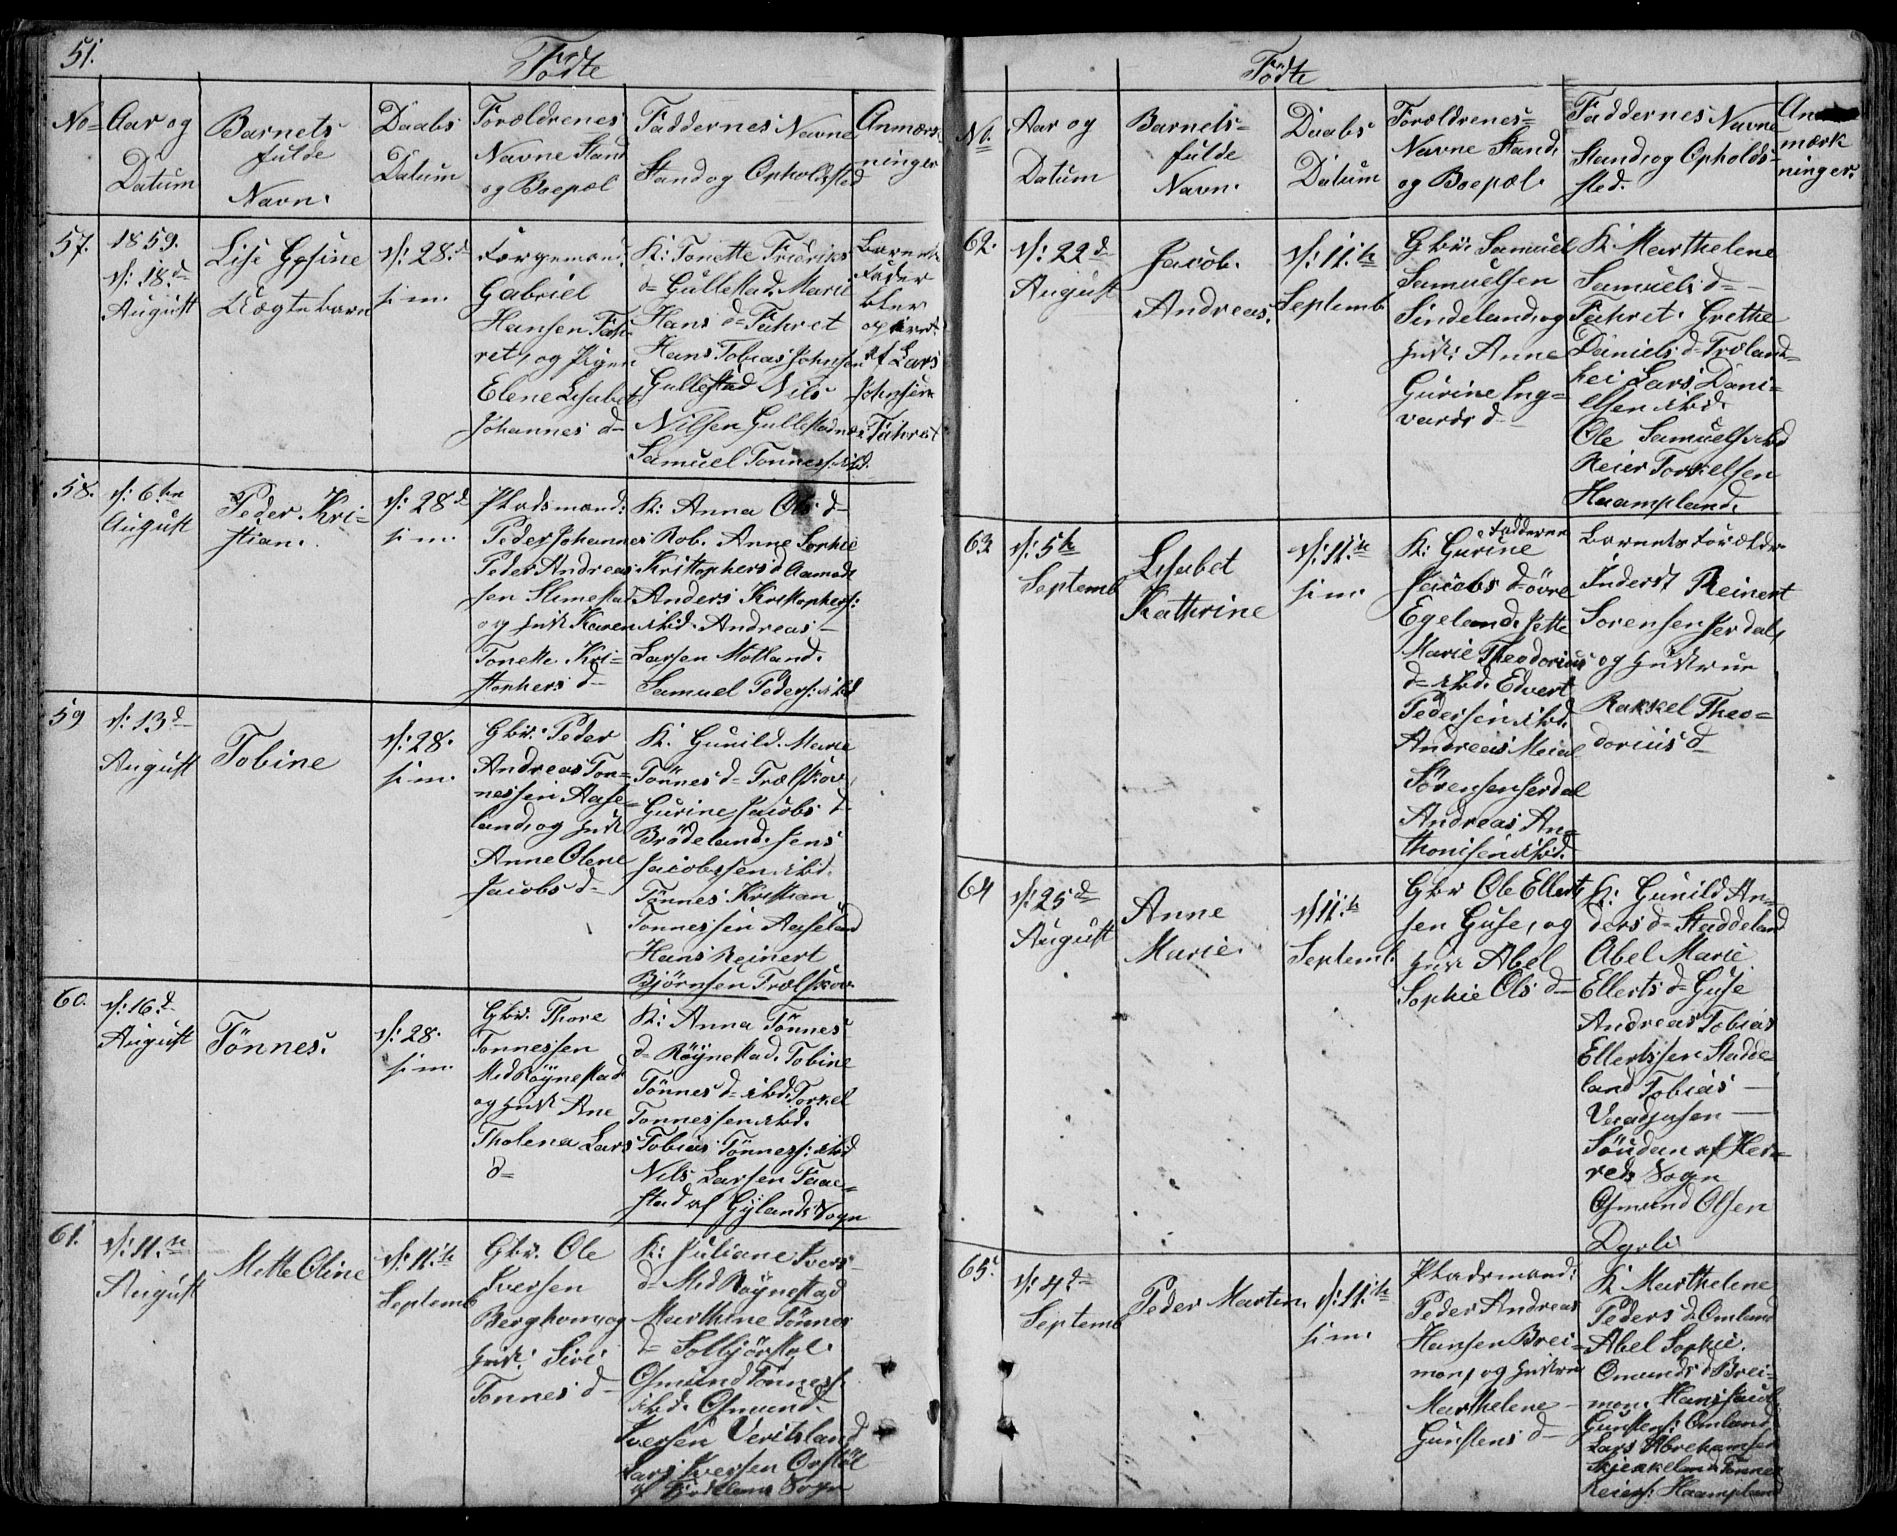 51.
Födte
No
Aar og
Datum
Barnets
fulde
Navn.
Daabs
Datum
Forældrenes
Navne Stand
og Boepæl
Faddernes Navne
Stand og Opholdssted
Anmærk-
ninger
57.
1859.
d: 18.d
August
Lise Gesine
Uægte barn
d: 28.d
s: m:
Gabriel
Hansen Fah-
ret, og Pigen
Elene Lisabet
Johannes d
K: Tonette Fridriks
d Gullestad. Marie
Hans d Fahret
Hans Tobias Johnsen
Gullestad Nils
Nilsen Gullestadnes
Samuel Tonness: ibd.
Barnets
Fader
blev
af Lars
Johnsen
Fahret
58.
d: 6.te
August
Peder Kri-
stian.
d: 28 d
s: m:
Pladsmand:
Peder Johannes
Peder Andreas
sen Slimestad
og hust Karen
Tonette Kri-
stophers d
K: Anna Ols d
Rob. Anne Sophie
Kristophers d Aamodt
Anders Kristophers:
ibd. Andreas
Larsen Motland.
Samuel Peders: ibd
59
d: 13 d
August
Tobine
d: 28.
s: m.
Gbr: Peder
Andreas Ton-
nessen Aase-
land, og hust
Anne Olene
Jacobs d
K: Gunild Marie
Tönnes d Trælskov
Gurine Jacobs d
Brödeland. Jens
Jacobssen ibd.
Tönnes Kristian
Tonnessen Aaseland
Hans Reinert
Bjørnsen Trælskov.
60.
d: 16.d
August
Tönnes.
d: 28.
s: m.
Gbr: Thore
Tonnessen
Med Röynestad
og hust Ane
Tholena Lars
d
K: Anna Tönnes
d Röynestad. Tobine
Tönnes d ibd. Torkel
Tonnessen ibd.
Tobias Tönness: ibd
Nils Larsen Faae-
stad af Gylands Sogn
61.
d: 11.te
August
Mette Oline
d: 11.te
Septemb
Gbr. Ole
Iversen
Berghom, og
hust: Siri
Tonnes d
K: Juliane Ivers
d Med Röynestad
Marthine Tönnes
d Solbjörstöl.
Osmund Tönness:
ibd. Osmund
Iversen Veritsland
Lars Iversen Orstöl
af Sogn
Födte
No.
Aar og
Datum
Barnets
fulde
Navn.
Daabs
Datum
Forældrenes
Navne Stand
og Boepæl.
Faddernes Navne
Stand, og Opholds-
sted.
An
mærk
ninger.
62.
d: 22 d
August
Jacob.
Andreas.
d: 11.te
Septemb
Gbr: Samuel
Samuelsen
Sindeland, og
hust: Anne
Gurine Ing-
vards d
K: Marthelene
Samuels d
Fahret. Grethe
Daniels d Træland-
hei Lars Dani-
elsen ibd.
Ole Samuels ibd
Reier Torkelsen
Haampland.
63
d: 5te
Septemb
Lisabet
Kathrine
d: 11.te
s: m:
Fadderne
K: Gurine
Jacobs d övre
Egeland. Jette
Marie Theodorius
d ibd. Edvert
Pedersen ibd.
Andreas Meial
Sörensen Serdal
Andreas An-
thonisen ibd.
Barnets Forældre
Inderst Reinert
Sorensen Serdal,
og hustrue
Rakkel Theo-
dorius d
64
d: 25 d
August
Anne
Marie.
d 11.te
Septemb.
Gbr Ole Ellert-
sen Guse, og
hust Abel
Sophie Ols d
K: Gunild An-
ders d Staddeland
Abel Marie
Ellerts d Guse
Andreas Tobias
Ellertssen Stadde-
land Tobias
Söndan af Her-
reds Sogn
Osmund Olsen
Dyrli
65.
d: 4.d
Septemb
Peder Martin.
d: 11.te
s: m.
Pladsmand:
Peder Andreas
Hansen Brei-
mon, og hustrue
Marthelene
Gunstens d
K Marthelene
Peders d Omland
Abel Sophie.
Omunds d Brei-
mon. Hans Jacob
Gunstens: Omland
Lars Abrehamsen
Skjekeland Tönnes
Reiers: Haampland